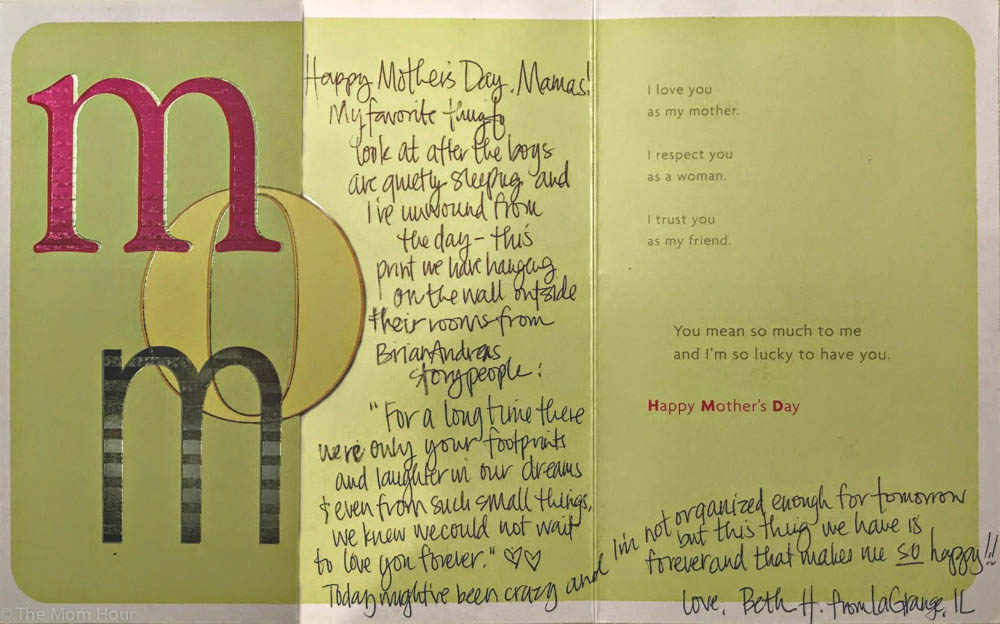 mom
Happy Mother's Day, Mamas!
My favorite thing to
look at after the boys
are quietly sleeping and
I've unwound from
the day - this
print we have hanging
on the wall outside
their rooms from
Brian Andreas
Storypeople:
"For a long time there
were only your footprints
and laughter in our dreams
& even from such small things,
we knew we could not wait
to love you forever." ♡♡
Today might've been crazy and I'm not organized enough for tomorrow
but this thing we have is
forever and that makes me so happy!!
Love, Beth H. from LaGrange, IL
I love you
as my mother.
I respect you
as a woman.
I trust you
as my friend.
You mean so much to me
and I'm so lucky to have you.
Happy Mother's Day
© The Mom Hour